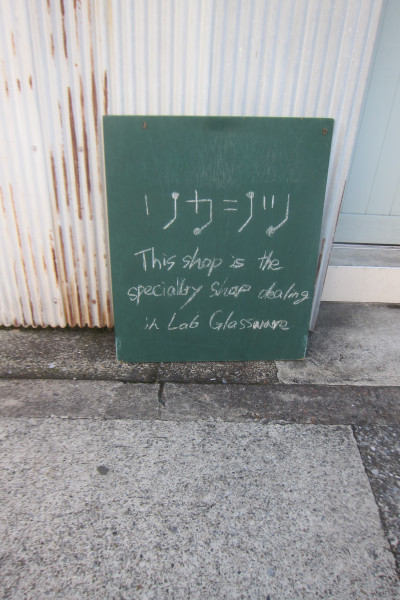 リカシツ
This shop is the
specialby shop dealing
in Lab Glassware